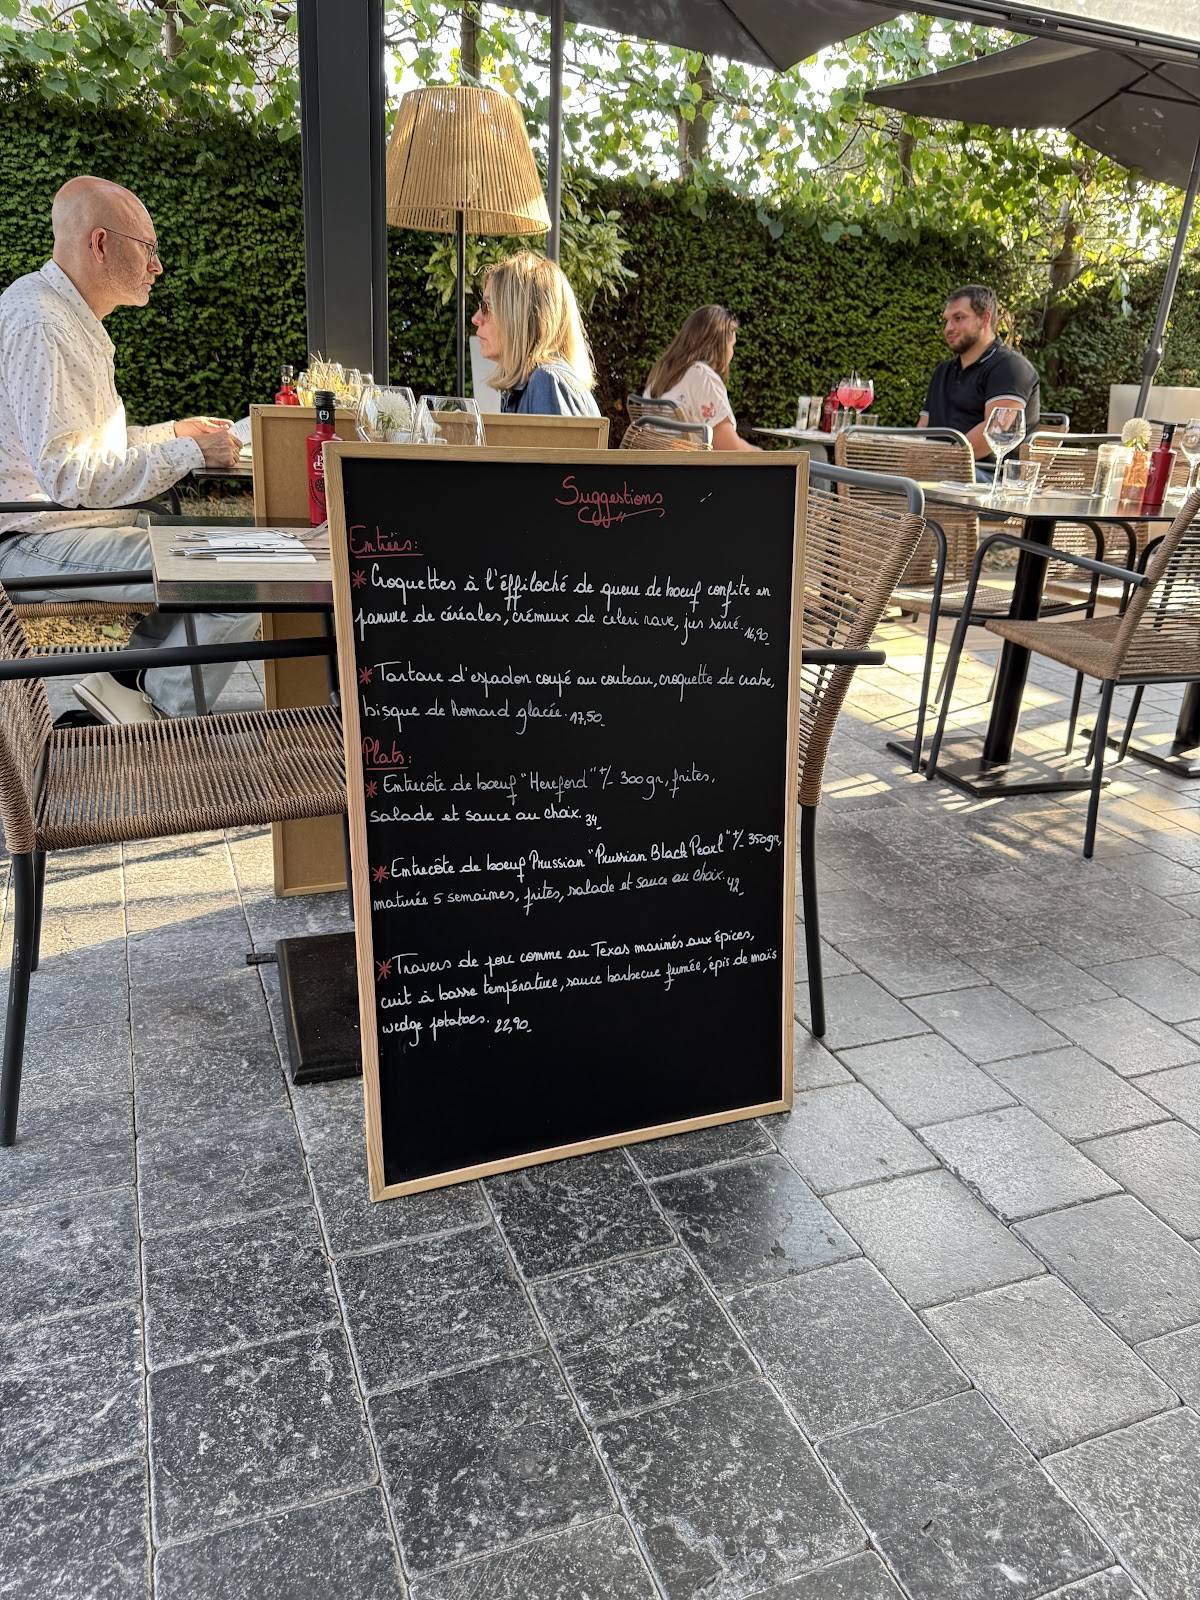 Suggestions
Entrées:
* Croquettes à l'éffiloché de queue de boeuf confite en
panure de céréales, crémeux de celeri rave, jus serré. 16,90
* Tartare d'espadon coupé au couteau, croquette de crabe,
bisque de homard glacée. 17,50
Plats:
* Entrecôte de boeuf "Hereford" +/- 300gr, frites,
salade et sauce au choix. 34
* Entrecôte de boeuf Prussian "Prussian Black Pearl" +/- 350gr,
maturée 5 semaines, frites, salade et sauce au choix. 42
* Travers de porc comme au Texas marinés aux épices,
cuit à basse température, sauce barbecue fumée, épis de maïs
wedge potatoes. 22,90